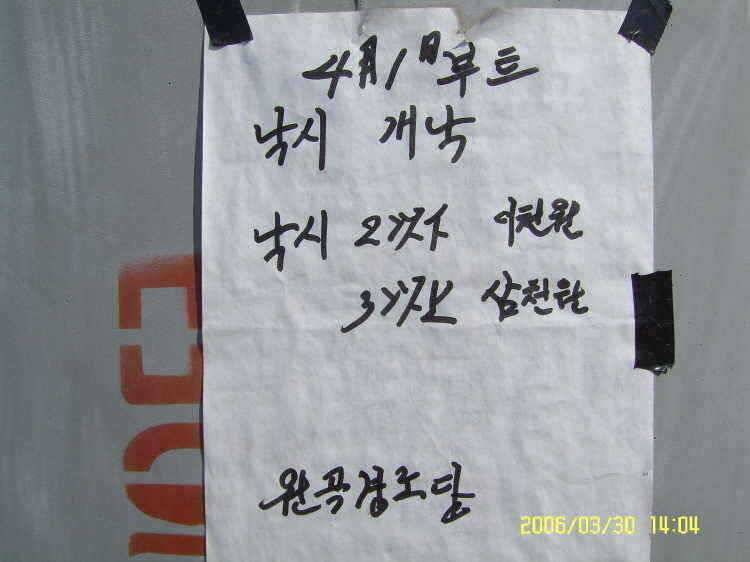 4月1日부트
낚시 개낙
낚시 2깃자 이천원
3깃자 삼천원
완곡경노당
2006/03/30 14:04